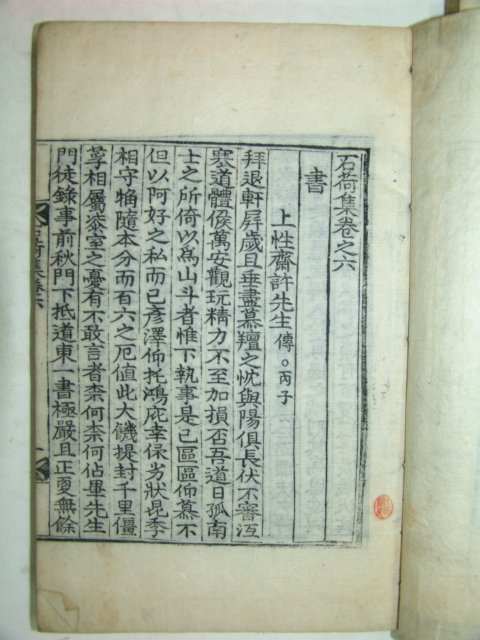 石荷集卷之六
書
上性齋許先生傳。丙子
拜退軒屛歲且垂盡慕羶之忱與陽俱長伏不審沍
寒道體候萬安觀玩精力不至加損否吾道日孤南
士之所倚以爲山斗者惟下執事是已區區仰慕不
但以阿好之私而已彥澤仰托鴻庇幸保劣狀昆季
相守殗隨本分而百六之厄値此大饑提封千里僵
莩相屬漆室之憂有不敢言者柰何柰何佔畢先生
門徒錄事前秋門下抵道東一書極嚴且正更無餘
石荷集卷六
一